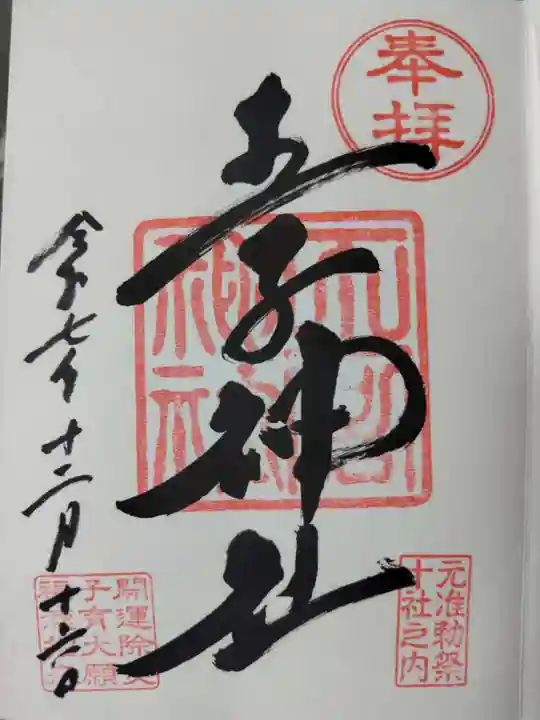 奉拝
王子神社
元准勅祭
十社之内
令和七年十二月
開運除災
子育大願